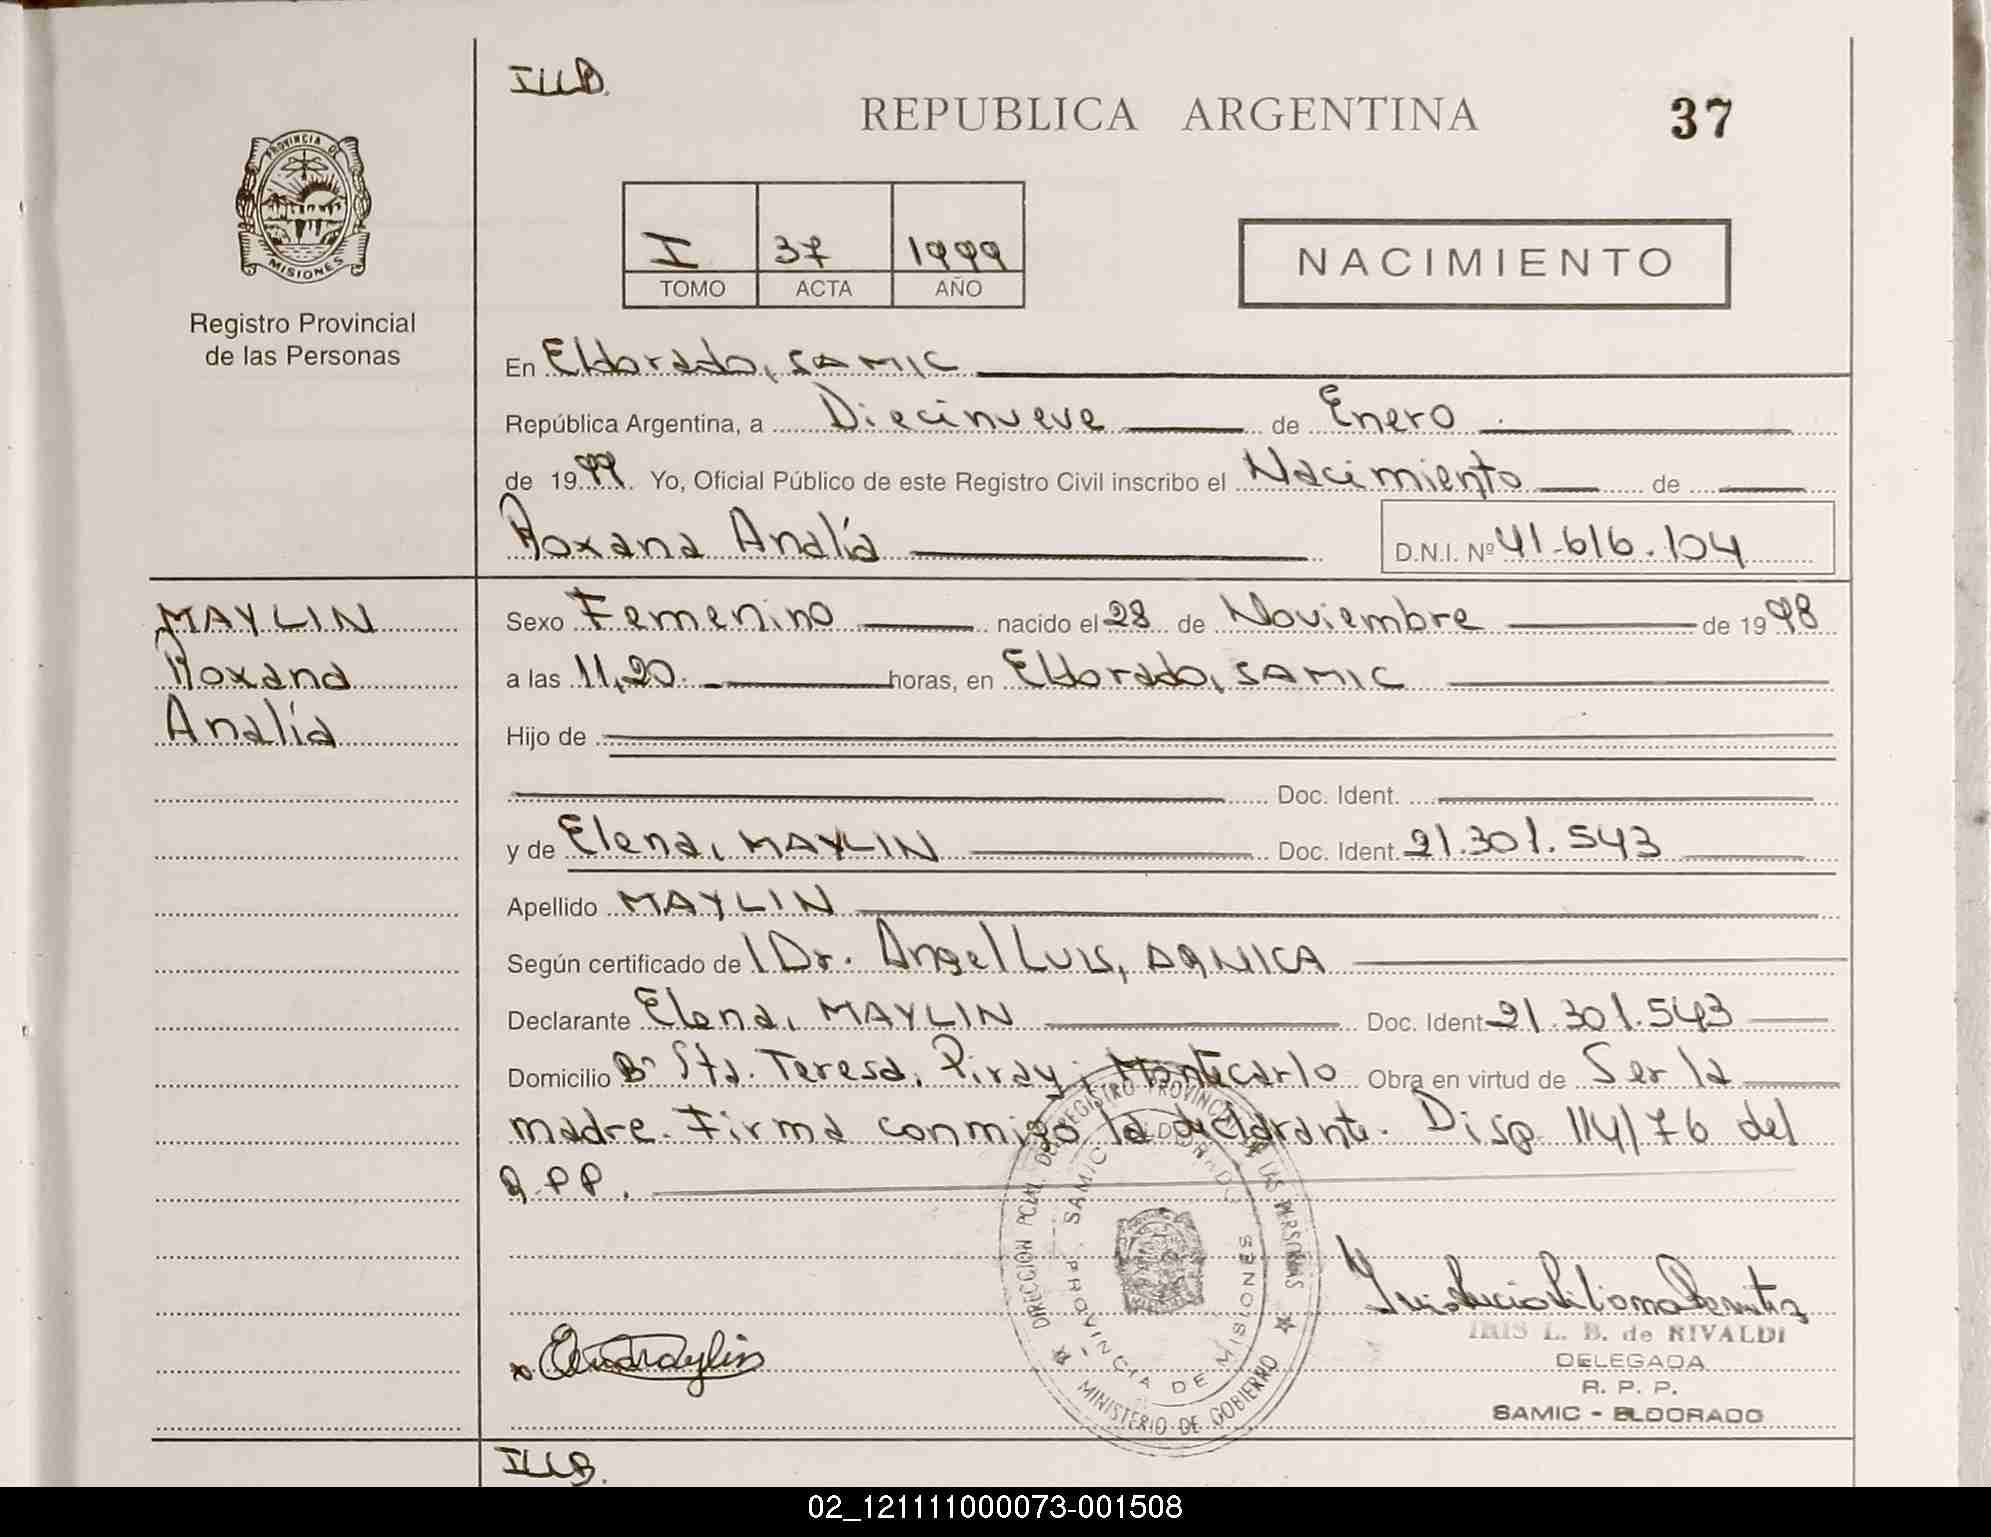 ILLB.
REPUBLICA ARGENTINA
37
PROVINCIA DE
MISIONES
Registro Provincial
de las Personas
I 37 1999
TOMO ACTA AÑO
NACIMIENTO
En Eldorado, SAMIC
República Argentina, a Diecinueve de Enero
de 1999. Yo, Oficial Público de este Registro Civil inscribo el Nacimiento de
Roxana Analía D.N.I. Nº 41.616.104
MAYLIN
Roxana
Analía
Sexo Femenino nacido el 28 de Noviembre de 1998
a las 11,20. horas, en Eldorado, SAMIC
Hijo de
Doc. Ident.
y de Elena, MAYLIN Doc. Ident. 21.301.543
Apellido MAYLIN
Según certificado de l Dr. Angel Luis,
Declarante Elena, MAYLIN Doc. Ident. 21.301.543
Domicilio Bº Sta. Teresa, Piray, Montecarlo Obra en virtud de Ser la
madre. Firma conmigo la declarante. Disp. 114/76 del
R.P.P.
DIRECCION PCIAL. DEL REGISTRO PROVINCIAL DE LAS PERSONAS
SAMIC ELDORADO
PROVINCIA DE MISIONES
MINISTERIO DE GOBIERNO
IRIS L. B. de RIVALDI
DELEGADA
R. P. P.
SAMIC - ELDORADO
ILLB.
02_121111000073-001508